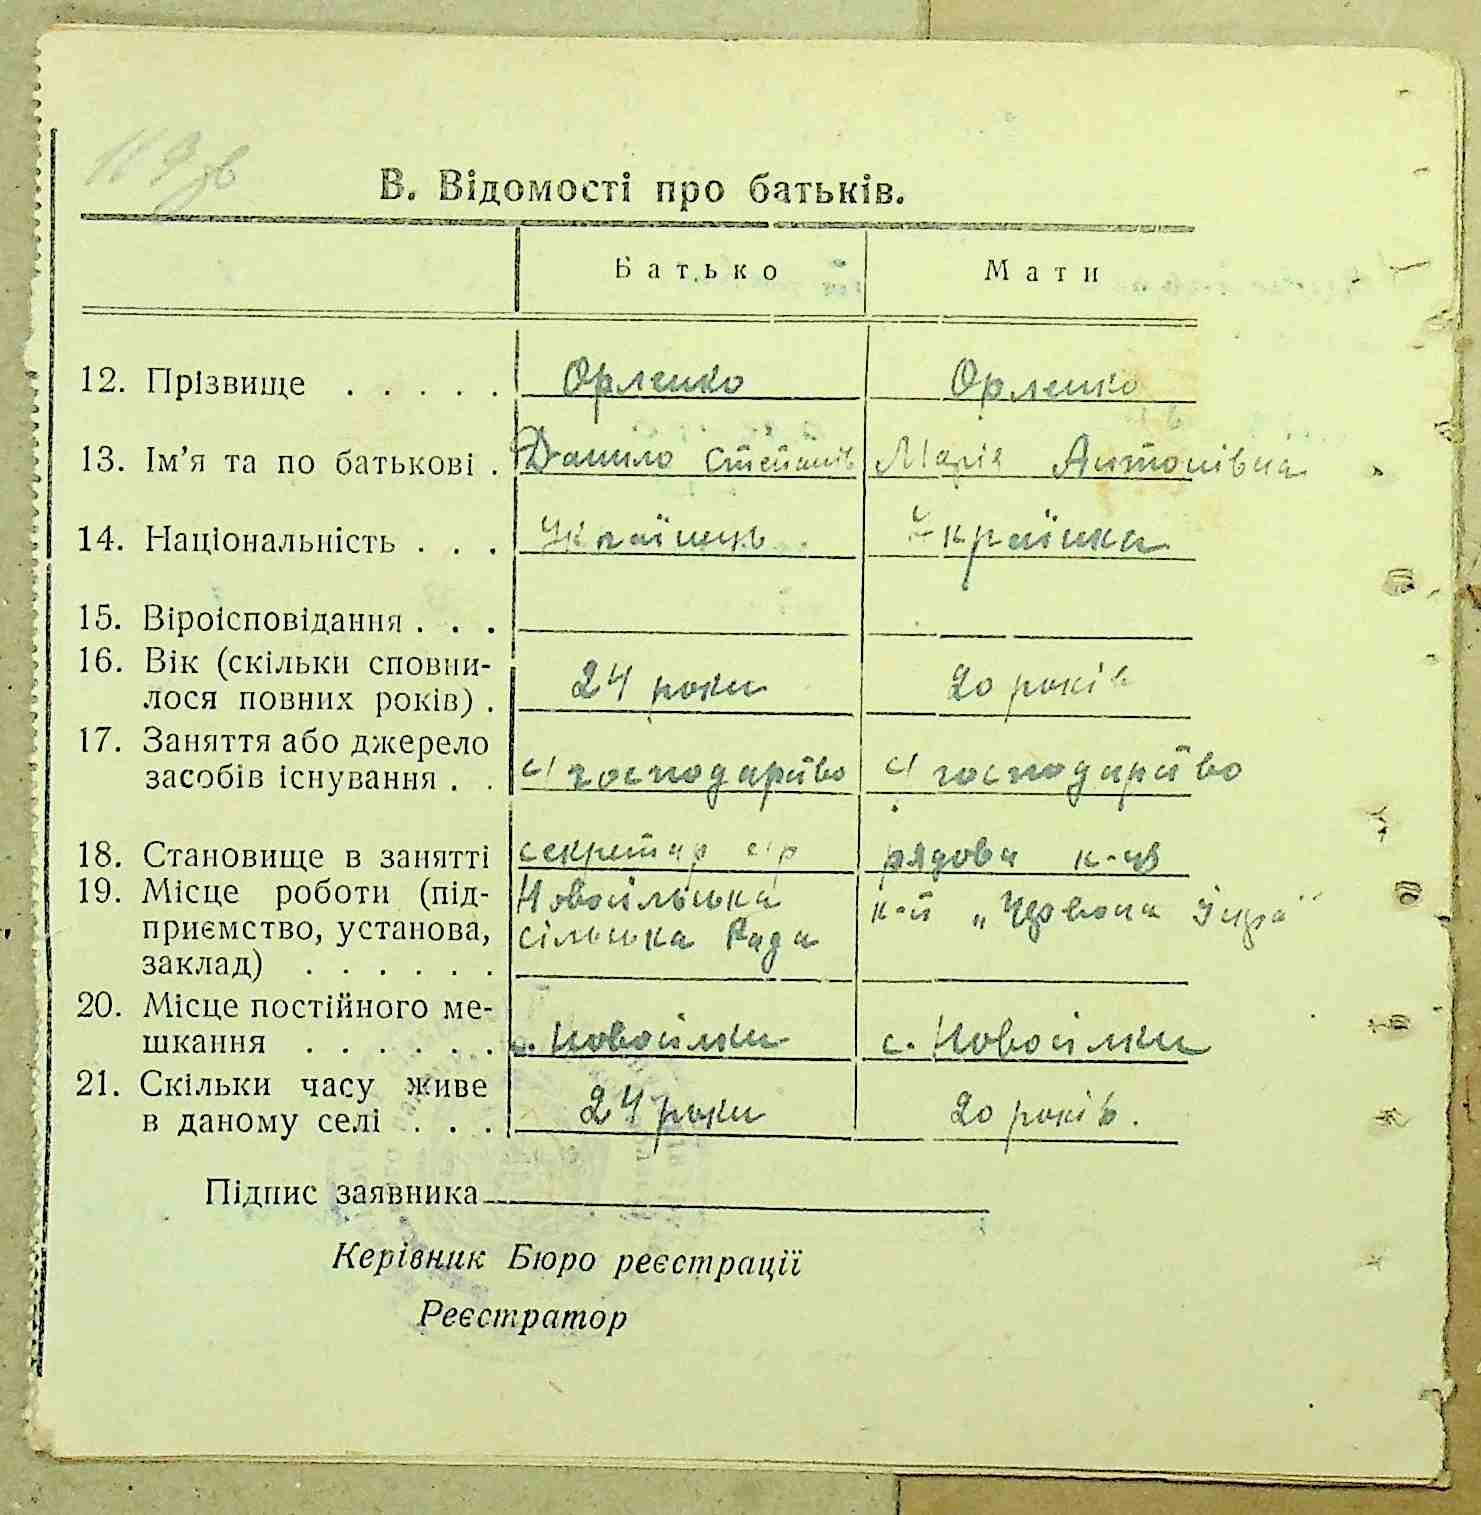 119 зв
В. Відомості про батьків.
Батько Мати
12. Прізвище . . . . . Орленко Орленко
13. Ім'я та по батькові . Данило Степанів Марія Антонівна
14. Національність . . . Українець Українка
15. Віроісповідання . . .
16. Вік (скільки сповни-
лося повних років) . 24 роки 20 років
17. Заняття або джерело
засобів існування . . с/господарство с/господарство
18. Становище в занятті секретар с/р рядова
19. Місце роботи (під-
приємство, установа,
заклад) . . . . . .
сільська Рада „Червона
20. Місце постійного ме-
шкання . . . . . . с. с.
21. Скільки часу живе
в даному селі . . . 24 роки 20 років.
Підпис заявника
Керівник Бюро реєстрації
Реєстратор